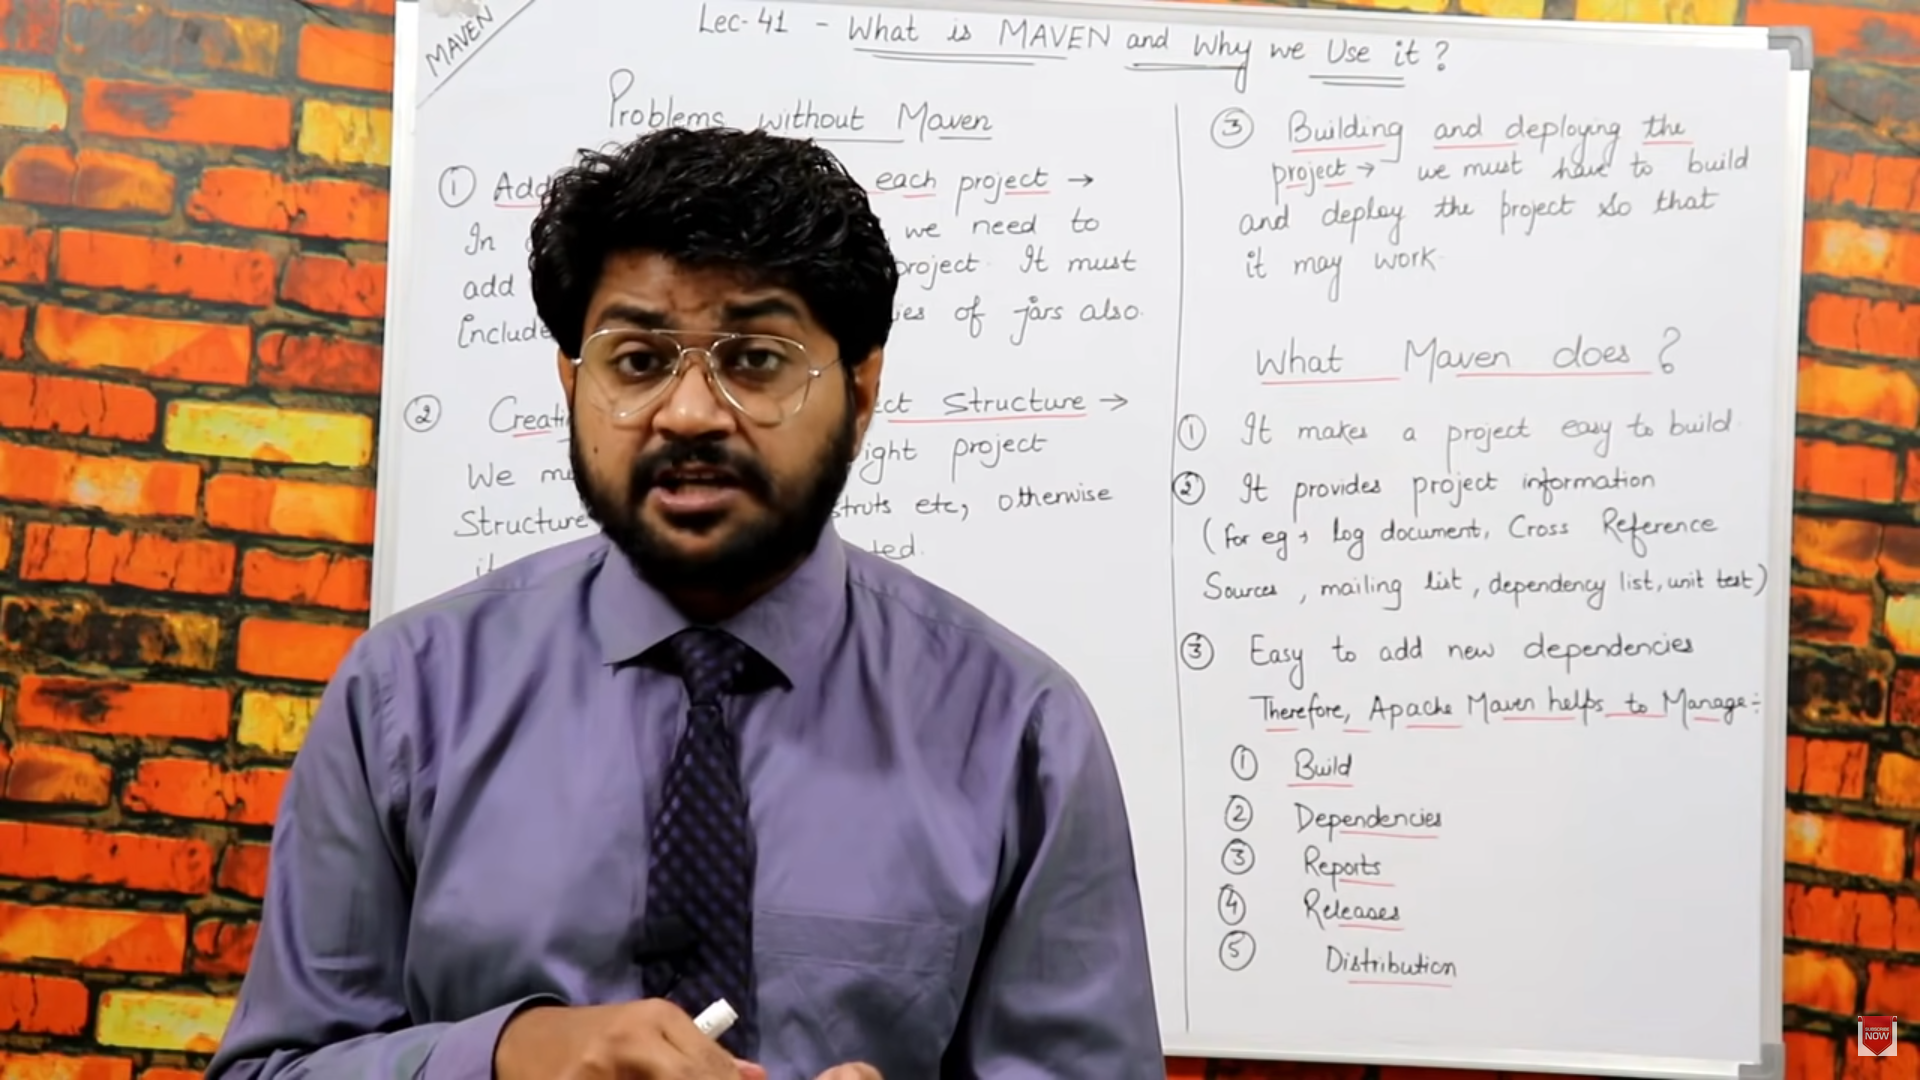 MAVEN
Lec-41 - What is MAVEN and Why we Use it ?
Problems without Maven
① each project →
In we need to
add project. It must
Include of jars also.
② ect Structure →
We ight project
Structure struts etc, otherwise
it ted.
③ Building and deploying the
project → we must have to build
and deploy the project so that
it may work.
What Maven does ?
① It makes a project easy to build.
② It provides project information
(for eg → log document, Cross Reference
Sources, mailing list, dependency list, unit test)
③ Easy to add new dependencies
Therefore, Apache Maven helps to Manage:-
① Build
② Dependencies
③ Reports
④ Releases
⑤ Distribution
SUBSCRIBE
NOW